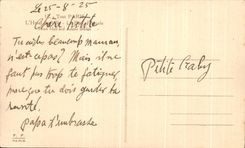 Le 25-8-25
Chère petite
Tu aides beaucoup maman,
n'est-ce pas? Mais il ne
faut pas trop te fatiguer
parce que tu dois garder ta
santé.
papa t'embrasse
Petite Gaby